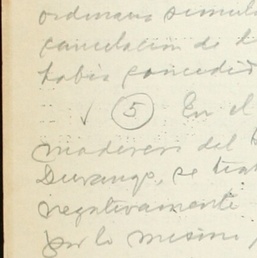 ordenara
cancelación de
había concedido
✓ (5) En el
maderero del
Durango, se
negativamente
por lo mismo